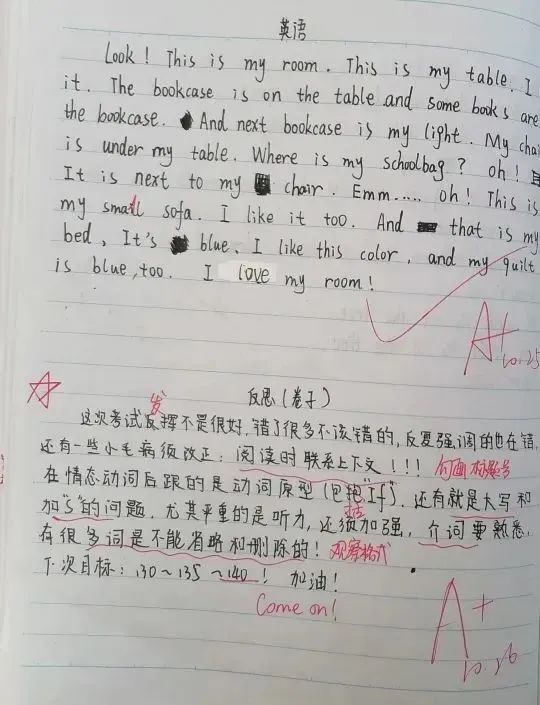 英语
Look! This is my room. This is my table. I
it. The bookcase is on the table and some books are
the bookcase. And next bookcase is my light. My chai
is under my table. Where is my schoolbag? oh!
It is next to my chair. Emm..... oh! This is
my small sofa. I like it too. And that is my
bed, It's blue. I like this color, and my quilt
is blue, too. I love my room!
A+
10.25
反思(卷子)
发
这次考试反挥不是很好,错了很多不该错的,反复强调的也在错,
还有一些小毛病须改正:阅读时联系上下文!!! 勾画标题号
在情态动词后跟的是动词原型(包抱"If).还有就是大写和
括
加"s"的问题.尤其严重的是听力,还须加强,介词要熟悉,
有很多词是不能省略和删除的!观察格式
下次目标:130~135~140! 加油!
Come on!
A+
10.26